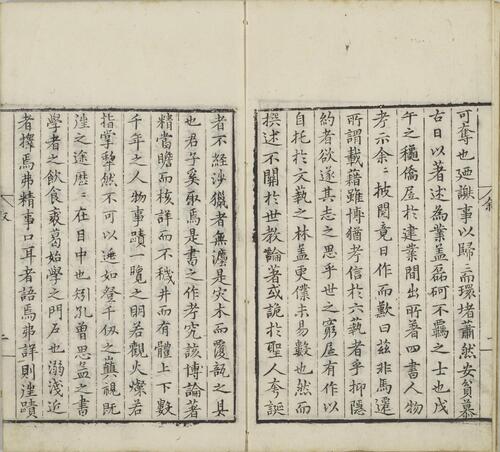 可奪也廼謝事以歸而環堵蕭然安貧慕
古日以著述為業蓋磊砢不羈之士也戊
午之穐僑居於建業間出所著四書人物
考示余〻披閱竟日作而歎曰茲非馬遷
所謂載藉雖博猶考信於六埶者乎抑隱
約者欲遂其志之思乎世之窮居有作以
自托於文埶之林蓋更僕未易數也然而
撰述不關於世教論著或詭於聖人夸誕
叙
者不經涉獵者無 是灾木而覆瓿之具
也君子奚取焉是書之作考究該博論著
精當贍而核詳而不穢井而有體上下數
千年之人物事蹟一覽之明若觀火燦若
指掌犂然不可以遁如登千仞之巔視既
往之途歷〻在目中也矧孔曾思孟之書
學者之飲食裘葛始學之門戶也溺淺近
者擇焉弗精事口耳者語焉弗詳則往蹟